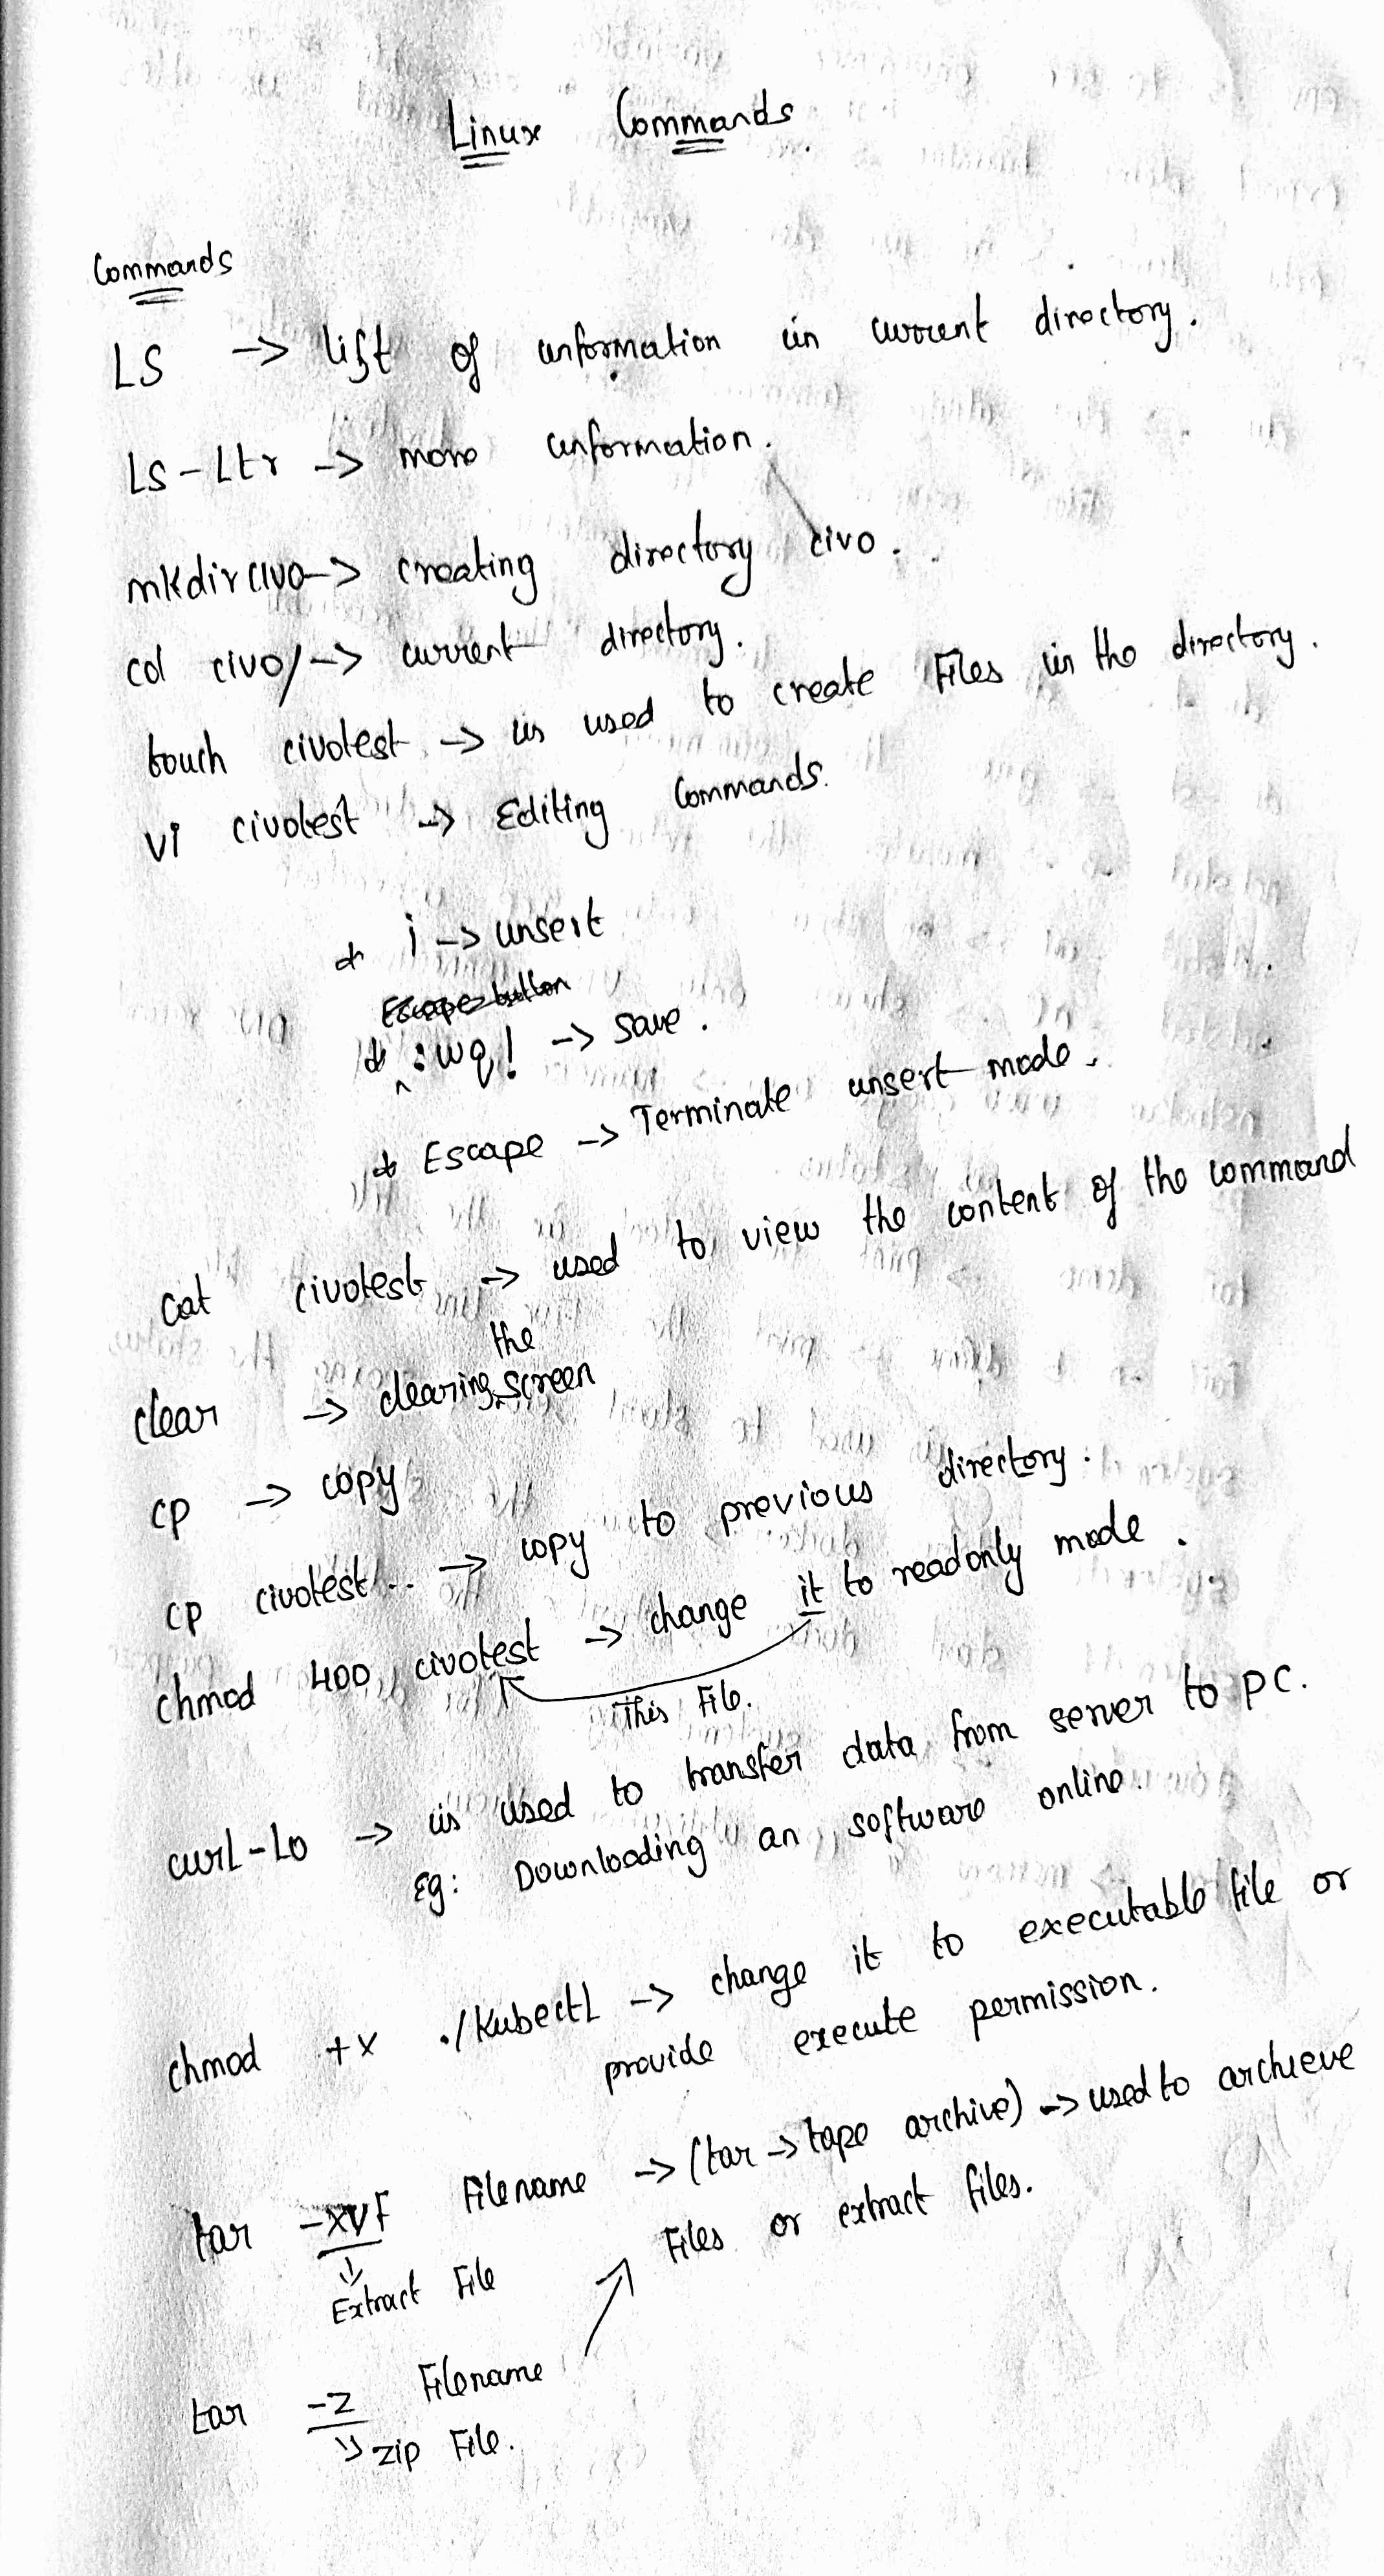 Linux Commands
Commands
LS -> list of information in current directory.
Ls-Ltr -> more information.
mkdir civo -> creating directory civo.
cd civo/ -> current directory.
touch civotest -> is used to create Files in the directory.
vi civotest -> Editing Commands.
* i -> insert
Escape button
* :wq! -> save.
* Escape -> Terminate insert mode.
cat civotest -> used to view the content of the command
the
clear -> clearing screen
cp -> copy
cp civotest .. -> copy to previous directory.
chmod 400 civotest -> change it to readonly mode.
This File.
curl-Lo -> is used to transfer data from server to pc.
Eg: Downloading an software online.
chmod +x ./KubectL -> change it to executable file or
provide execute permission.
tar -xvf Filename -> (tar -> tape archive) -> used to archieve
Files or extract files.
Extract File
tar -z Filename
zip File.